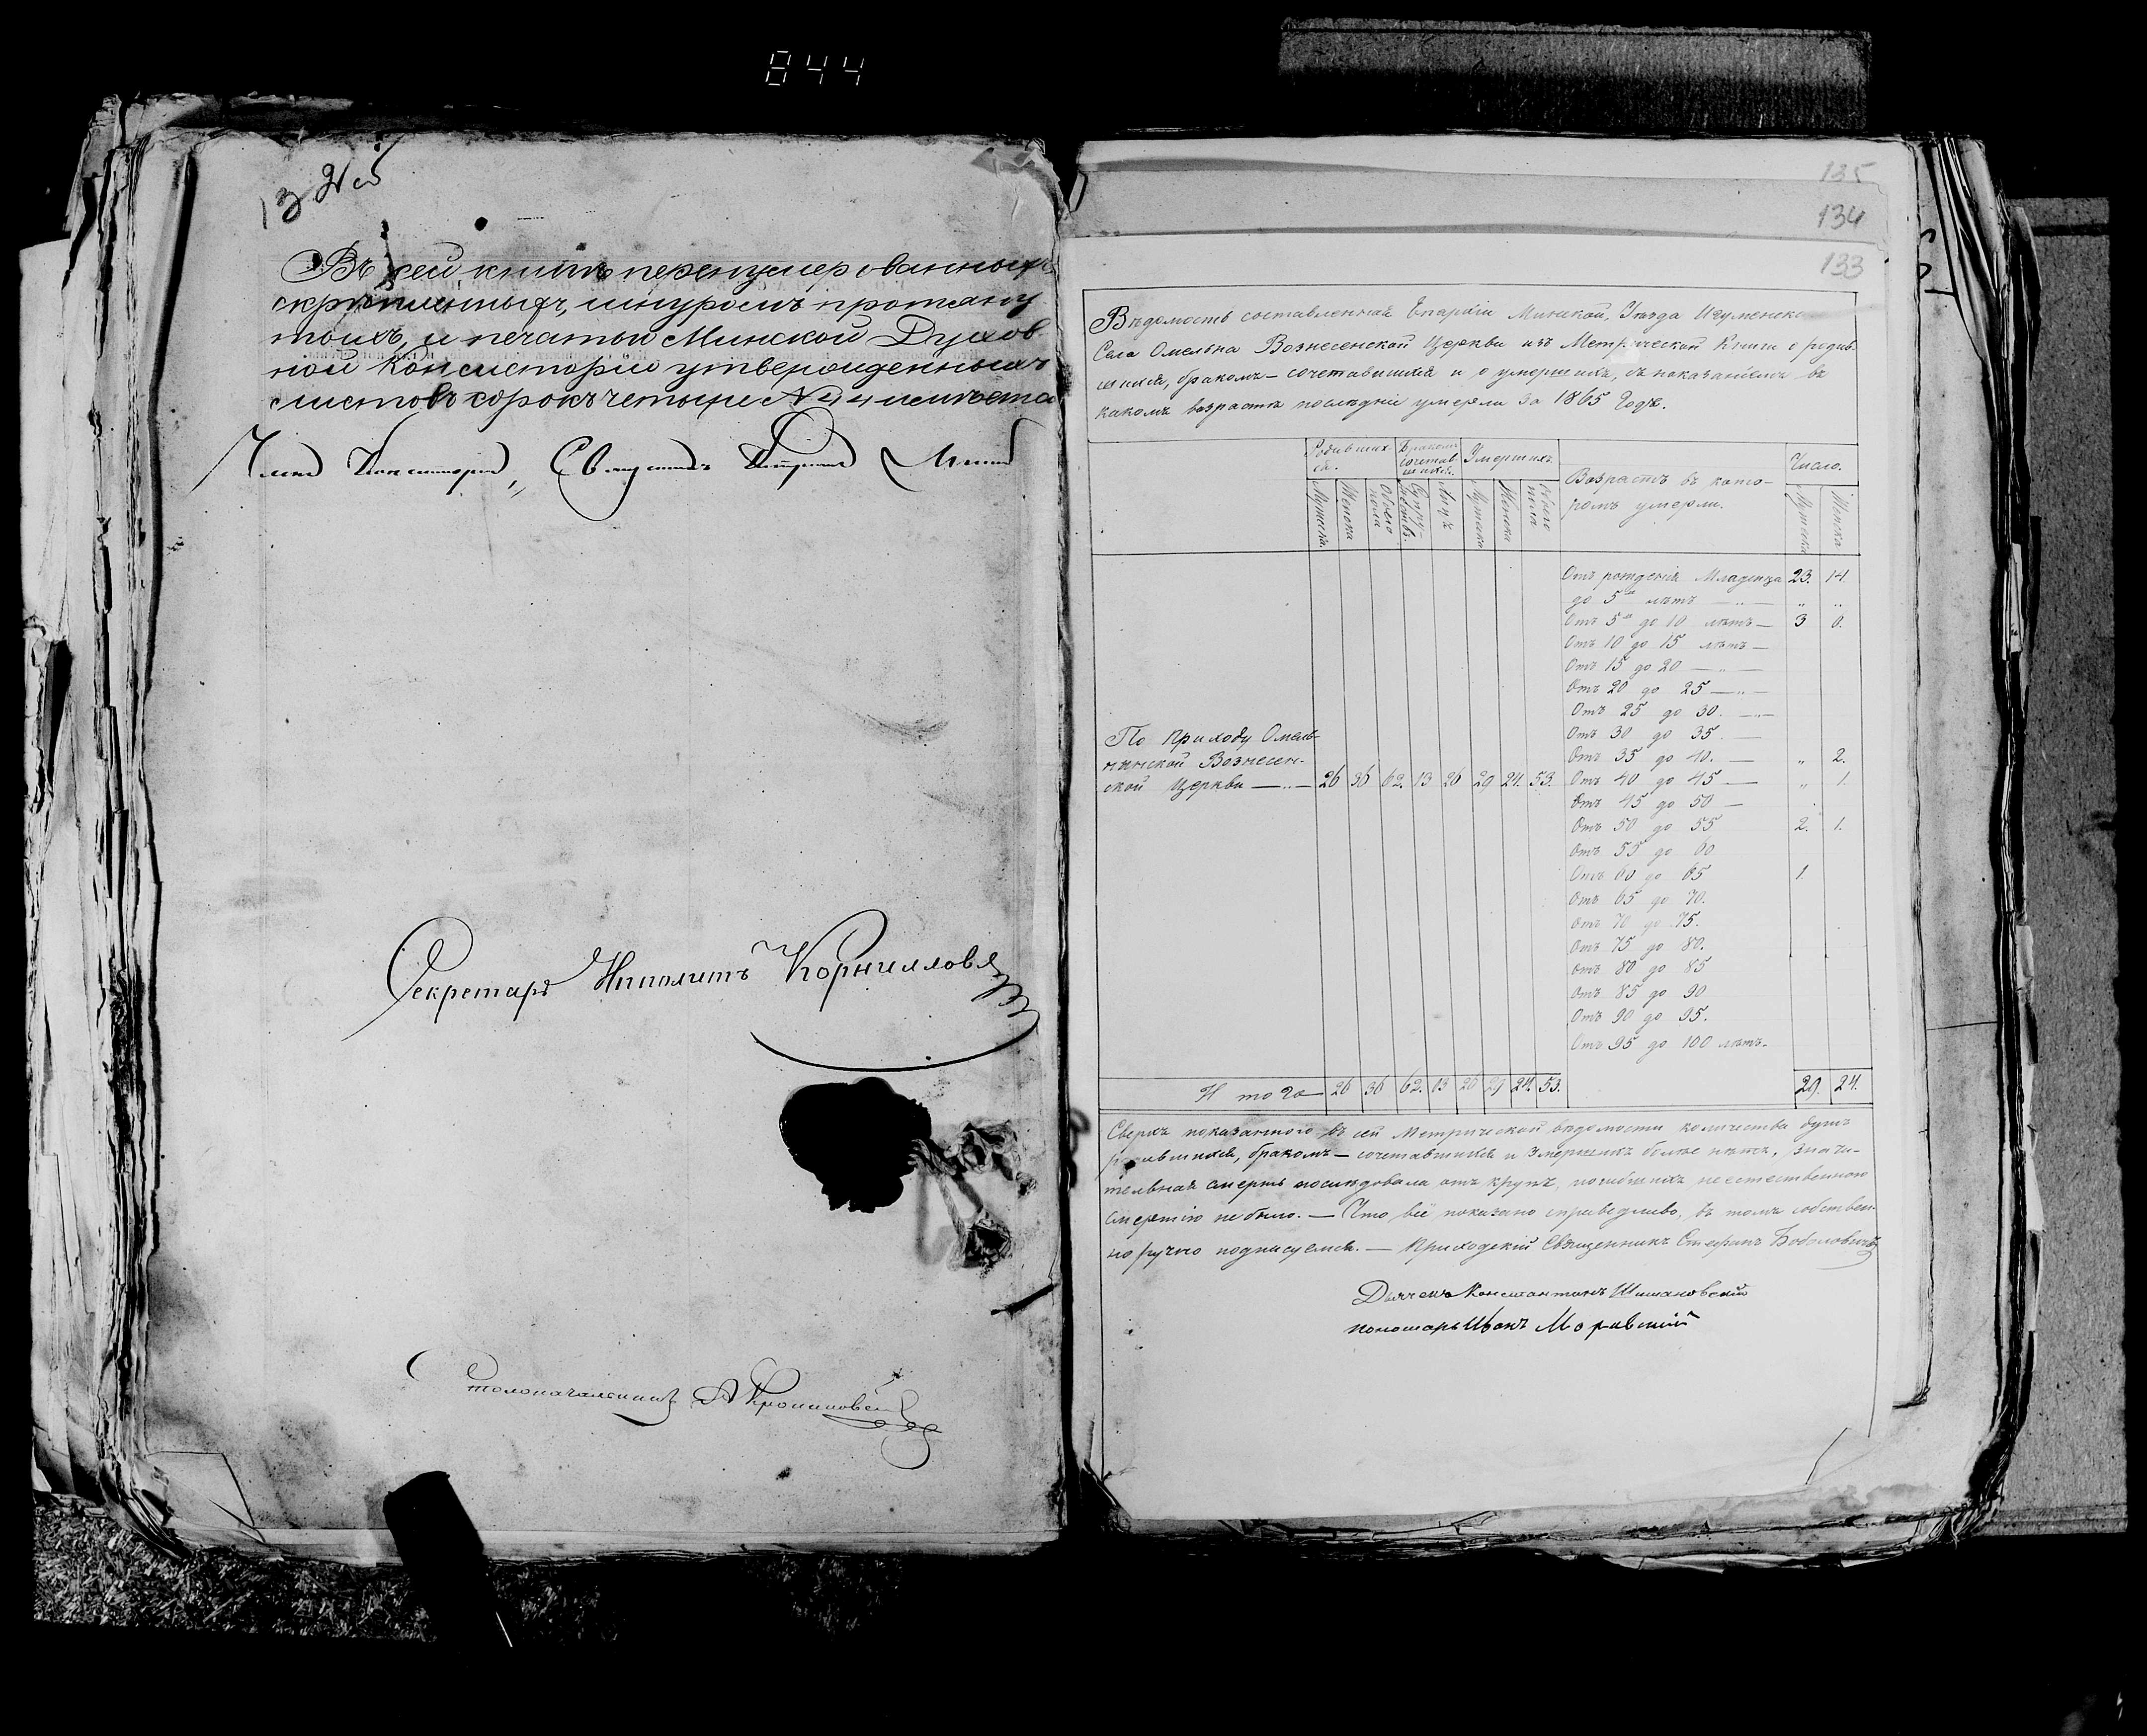 844
13
Въ сей книгѣ перенумерованныхъ
скрѣпленныхъ, шнуромъ протяну
тыхъ, и печатью Минской Духов-
ной Консисторіи утвержденныхъ
листовъ сорокъ четыре №44
Членъ Консисторіи, Священникъ
Секретарь Ипполитъ Корнилловъ
Столоначальникъ А
135
134
133
Вѣдомость составленная Епархіи Минской, Уѣзда Игуменска
Села Омельна Вознесенской Церкви изъ Метрической Книги о родив
шихся, бракомъ-сочетавшихся и о умершихъ, съ показаніемъ въ
какомъ возрастѣ послѣдніе умерли за 1865 Годъ.
Родивших-ся. Бракомъ сочетав-шихся. Умершихъ. Возрастъ въ кото-ромъ умерли. Число.
Мужска. Женска Обоего пола Супру-жествъ. Лицъ Мужска Женска Обоего пола Мужска Женска
Отъ рожденія Младенца 23. 14.
до 5ти лѣтъ — „ — „ „
Отъ 5ти до 10 лѣтъ — 3 6.
Отъ 10 до 15 лѣтъ —
Отъ 15 до 20 — „ —
Отъ 20 до 25 — „ —
Отъ 25 до 30. — „ —
Отъ 30 до 35. —
Отъ 35 до 40. — „ 2.
По Приходу Омель-
нянской Вознесен-
ской Церкви — „ — 26 36 62. 13 26 29 24. 53.
Отъ 40 до 45 — „ 1.
Отъ 45 до 50 —
Отъ 50 до 55 2. 1.
Отъ 55 до 60
Отъ 60 до 65 1.
Отъ 65 до 70.
Отъ 70 до 75.
Отъ 75 до 80.
Отъ 80 до 85
Отъ 85 до 90
Отъ 90 до 95.
Отъ 95 до 100 лѣтъ.
Итого — 26 36 62. 13 26 29 24. 53. 29. 24.
Сверхъ показанного въ сей Метрической вѣдомости количества душъ
родившихся, бракомъ-сочетавшихся и умершихъ болѣе нѣтъ, значи-
тельная смерть послѣдовала отъ крупъ, погибшихъ неестественною
смертію не было. — Что всё показано справедливо, въ томъ собствен-
норучно подписуемся. — Приходскій Священникъ Стефанъ Бобаловичъ
Дьячекъ Константинъ Шимановскій
пономарь Иванъ Моравскій